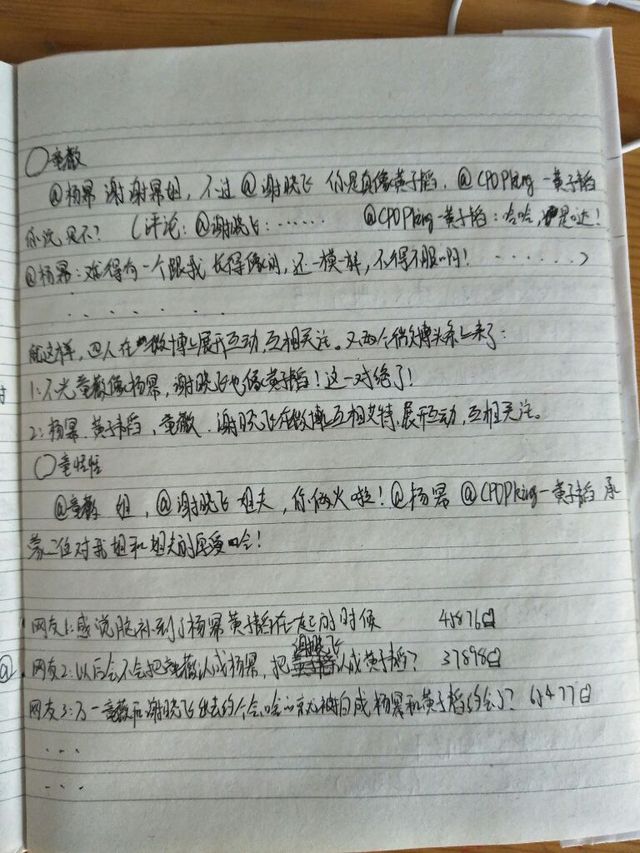 ○童薇
@杨幂 谢谢幂姐，不过@谢晓飞 你是真像黄子韬。@CPOPking-黄子韬
你说，是不？（评论：@谢晓飞：…… @CPOPking-黄子韬：哈哈，是哒！
@杨幂：难得有一个跟我长得像的，还一模一样，不得不服啊！ ……）
. . . . . .
就这样，四人在微博上展开互动，互相关注。又两个微博头条上来了：
1:不光童薇像杨幂，谢晓飞也像黄子韬！这一对绝了！
2:杨幂、黄子韬、童薇、谢晓飞在微博上互相艾特，展开互动，互相关注。
○童恬恬
@童薇 姐，@谢晓飞 姐夫，你俩火啦！@杨幂 @CPOPking-黄子韬 承
蒙二位对我姐和姐夫的厚爱哈！
网友1:感觉脑补到了杨幂黄子韬在一起的时候 45876
谢晓飞
网友2:以后会不会把童薇认成杨幂，把认成黄子韬？ 37898
网友3:万一童薇和谢晓飞出去约个会，会被拍成杨幂和黄子韬约会？ 65477
. . .
. . .
@